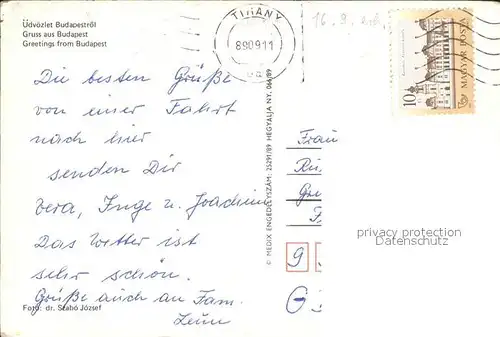 Üdvözlet Budapestről
Gruss aus Budapest
Greetings from Budapest
TIHANY
890911
16. 9.
10
MAGYAR POSTA
Die besten Grüße
von einer Fahrt
nach hier
senden Dir
Vera, Inge u. Joachim
Das Wetter ist
sehr schön.
Grüße auch an Fam.
Foto: dr. Szabó József
© MEDIX ENGEDÉLYSZÁM: 25291/89 HEGYALJA NY. 066/89
Frau
privacy protection
Datenschutz
9